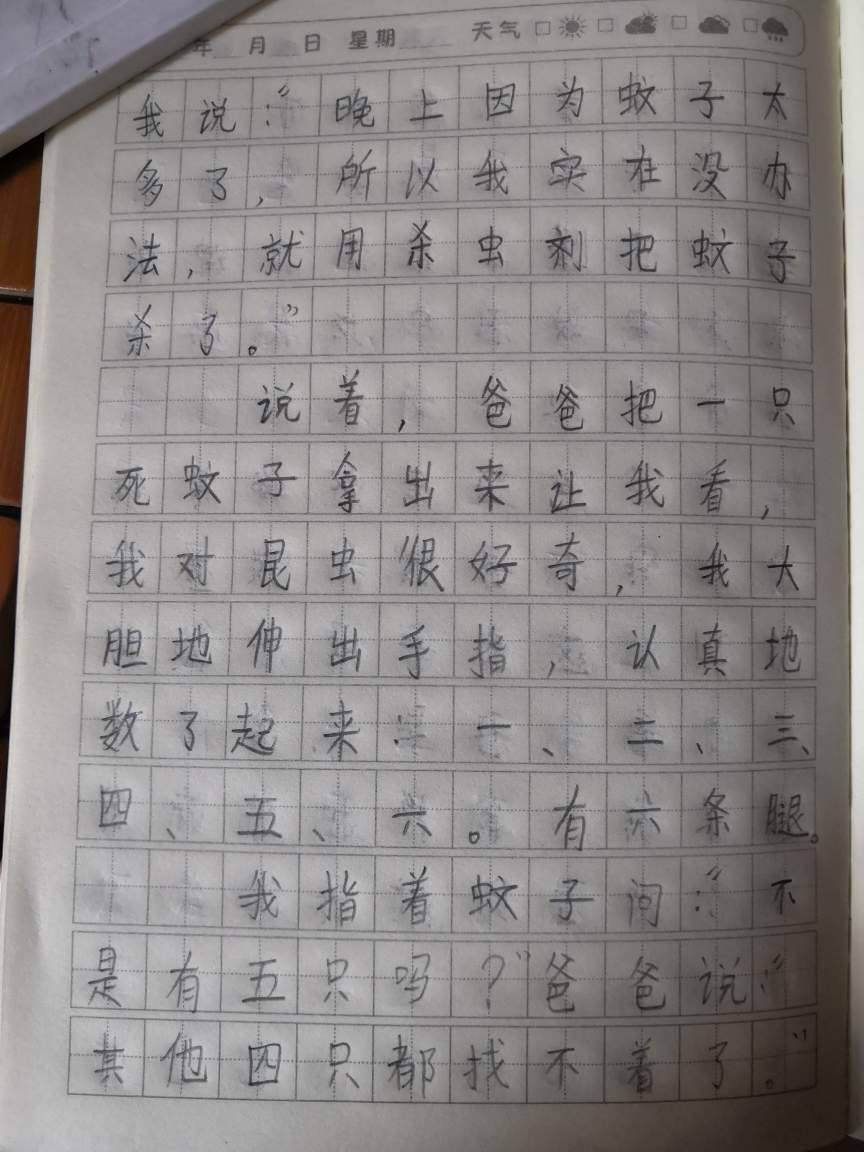 年 月 日 星期 天气
我说：“晚上因为蚊子太
多了，所以我实在没办
法，就用杀虫剂把蚊子
杀了。”
说着，爸爸把一只
死蚊子拿出来让我看，
我对昆虫很好奇，我大
胆地伸出手指，认真地
数了起来：一、二、三、
四、五、六。有六条腿。
我指着蚊子问：“不
是有五只吗？”爸爸说：“
其他四只都找不着了。”